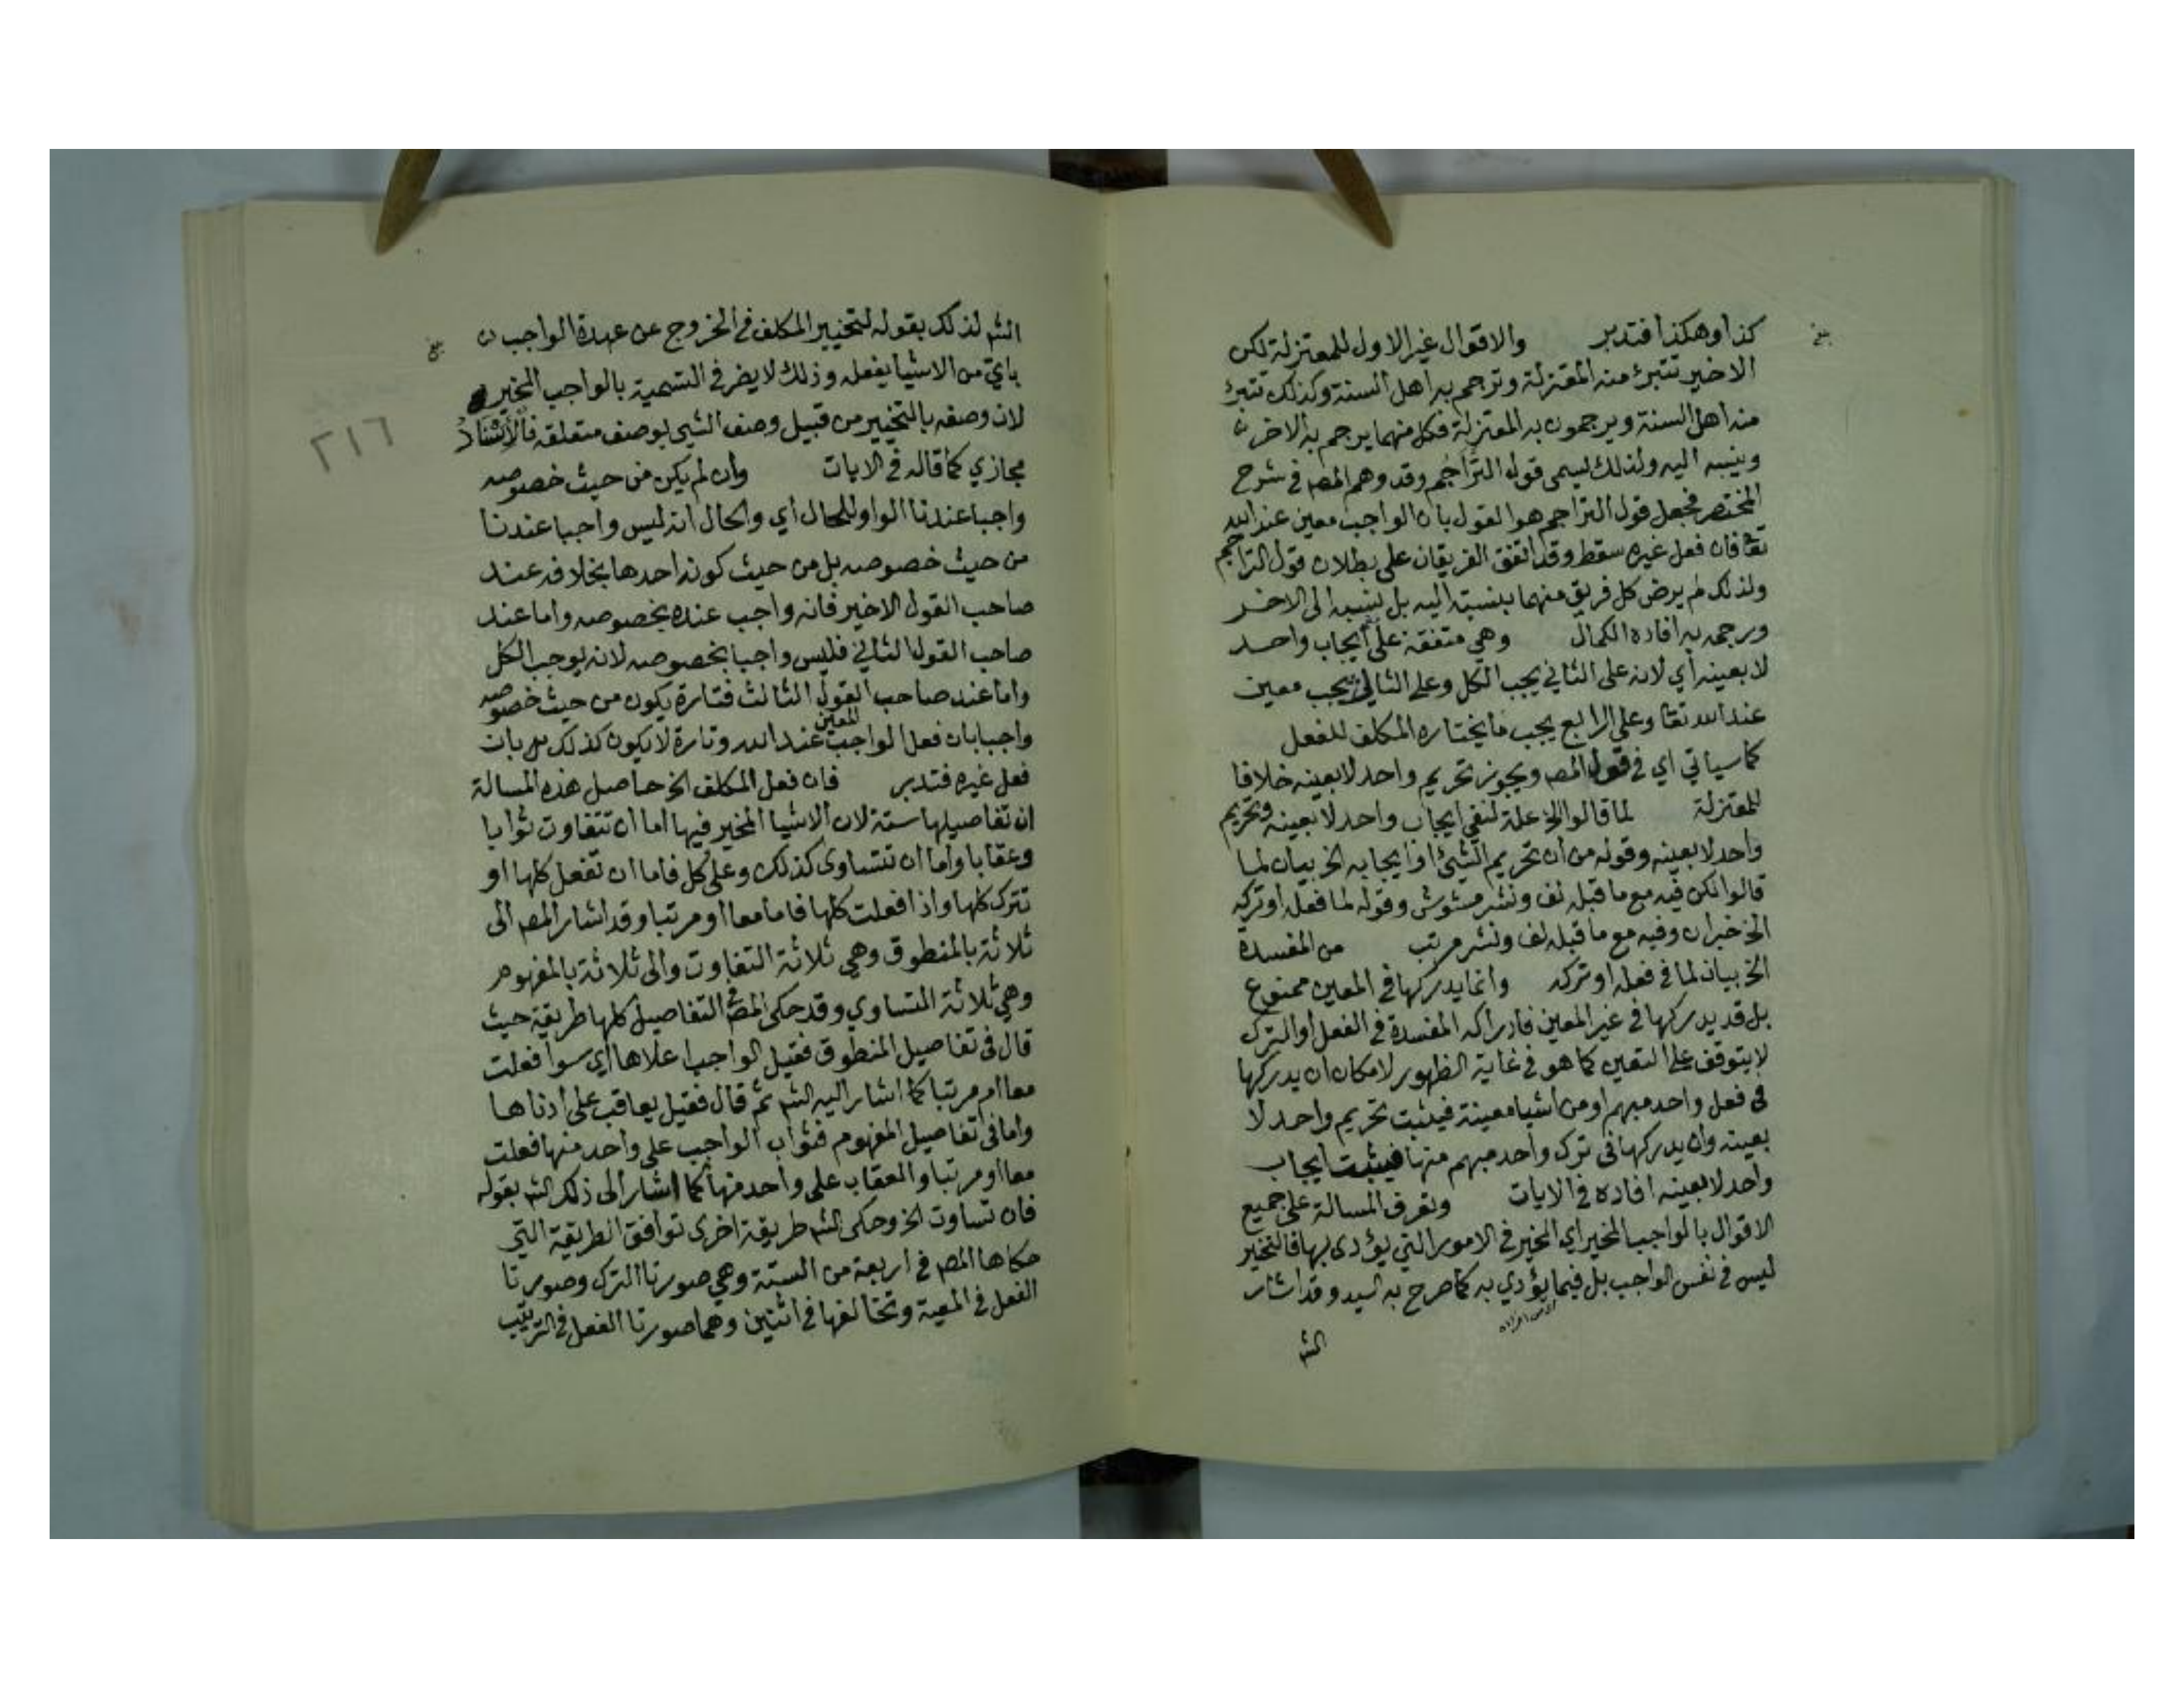 كذا وهكذا فتدبر والاقوال غير الاول للمعتزلة لكن
الاخير تتبرئ منه المعتزلة وترجم به اهل السنة وكذلك تتبرئ
منه اهل السنة ويرجمون به المعتزلة فكل منهما يرجم به الاخر
وينسبه اليه ولذلك يسمى قول التراجم وقد وهم المص في شرح
المختصر فجعل قول التراجم هو القول بان الواجب معين عند الله
تعا فان فعل غيره سقط وقد اتفق الفريقان على بطلان قول التراجم
ولذلك لم يرض كل فريق منهما بنسبته اليه بل نسبه الى الاخر
ورجمه به افاده الكمال وهي متفقة على ايجاب واحد
لا بعينه أي لانه على الثاني يجب الكل وعلى الثالث يجب معين
عند الله تعا وعلى الرابع يجب ما يختاره المكلف للفعل
كما سياتي اي في قول المص ويجوز تحريم واحد لا بعينه خلافا
للمعتزلة لما قالوا الخ علة لنفي ايجاب واحد لا بعينه وتحريم
واحد لا بعينه وقوله من ان تحريم الشيئ او ايجابه الخ بيان لما
قالوا لكن فيه مع ما قبله لف ونشر مشوش وقوله لما فعله او تركه
الخ خبران وفيه مع ما قبله لف ونشر مرتب من المفسدة
الخ بيان لما في فعله او تركه وانما يدركها في المعين ممنوع
بل قد يدركها في غير المعين فادراكه المفسدة في الفعل أو الترك
لا يتوقف على التعين كما هو في غاية الظهور لامكان ان يدركها
في فعل واحد مبهم او من اشيا معينة فيثبت تحريم واحد لا
بعينه وان يدركها في ترك واحد مبهم منها فيثبت ايجاب
واحد لا بعينه افاده في الايات وتعرف المسالة على جميع
الاقوال بالواجب المخير اي المخير في الامور التي يؤدى بها فالتخيير
ليس في نفس الواجب بل فيما يؤدي به كما صرح به السيد وقد اشار
الش
الش لذلك بقوله لتخيير المكلف في الخروج عن عهدة الواجب
باي من الاشيا يفعله وذلك لا يضر في التسمية بالواجب المخير
لان وصفه بالتخيير من قبيل وصف الشي بوصف متعلقه فالاسناد
٢١٦
مجازي كما قاله في الايات وان لم يكن من حيث خصوصه
واجبا عندنا الواو للحال أي والحال انه ليس واجبا عندنا
من حيث خصوصه بل من حيث كونه احدها بخلافه عند
صاحب القول الاخير فانه واجب عنده بخصوصه واما عند
صاحب القول الثاني فليس واجبا بخصوصه لانه يوجب الكل
واما عند صاحب القول الثالث فتارة يكون من حيث خصوصه
واجبا بان فعل الواجب المعين عند الله وتارة لا يكون كذلك بان
فعل غيره فتدبر فان فعل المكلف الخ حاصل هذه المسالة
ان تفاصيلها ستة لان الاشيا المخير فيها اما ان تتفاوت ثوابا
وعقابا واما ان تتساوى كذلك وعلى كل فاما ان تفعل كلها او
تترك كلها واذا فعلت كلها فاما معا او مرتبا وقد اشار المص الى
ثلاثة بالمنطوق وهي ثلاثة التفاوت والى ثلاثة بالمفهوم
وهي ثلاثة التساوي وقد حكى المص في التفاصيل كلها طريقة حيث
قال في تفاصيل المنطوق فقيل الواجب اعلاها اي سوا فعلت
معا ام مرتبا كما اشار اليه الش ثم قال فقيل يعاقب على ادناها
واما في تفاصيل المفهوم فثواب الواجب على واحد منها فعلت
معا او مرتبا والعقاب على واحد منها كما اشار الى ذلك الش بقوله
فان تساوت الخ وحكى الش طريقة اخرى توافق الطريقة التي
حكاها المص في اربعة من الستة وهي صورتا الترك وصورتا
الفعل في المعية وتخالفها في اثنين وهما صورتا الفعل في الترتيب